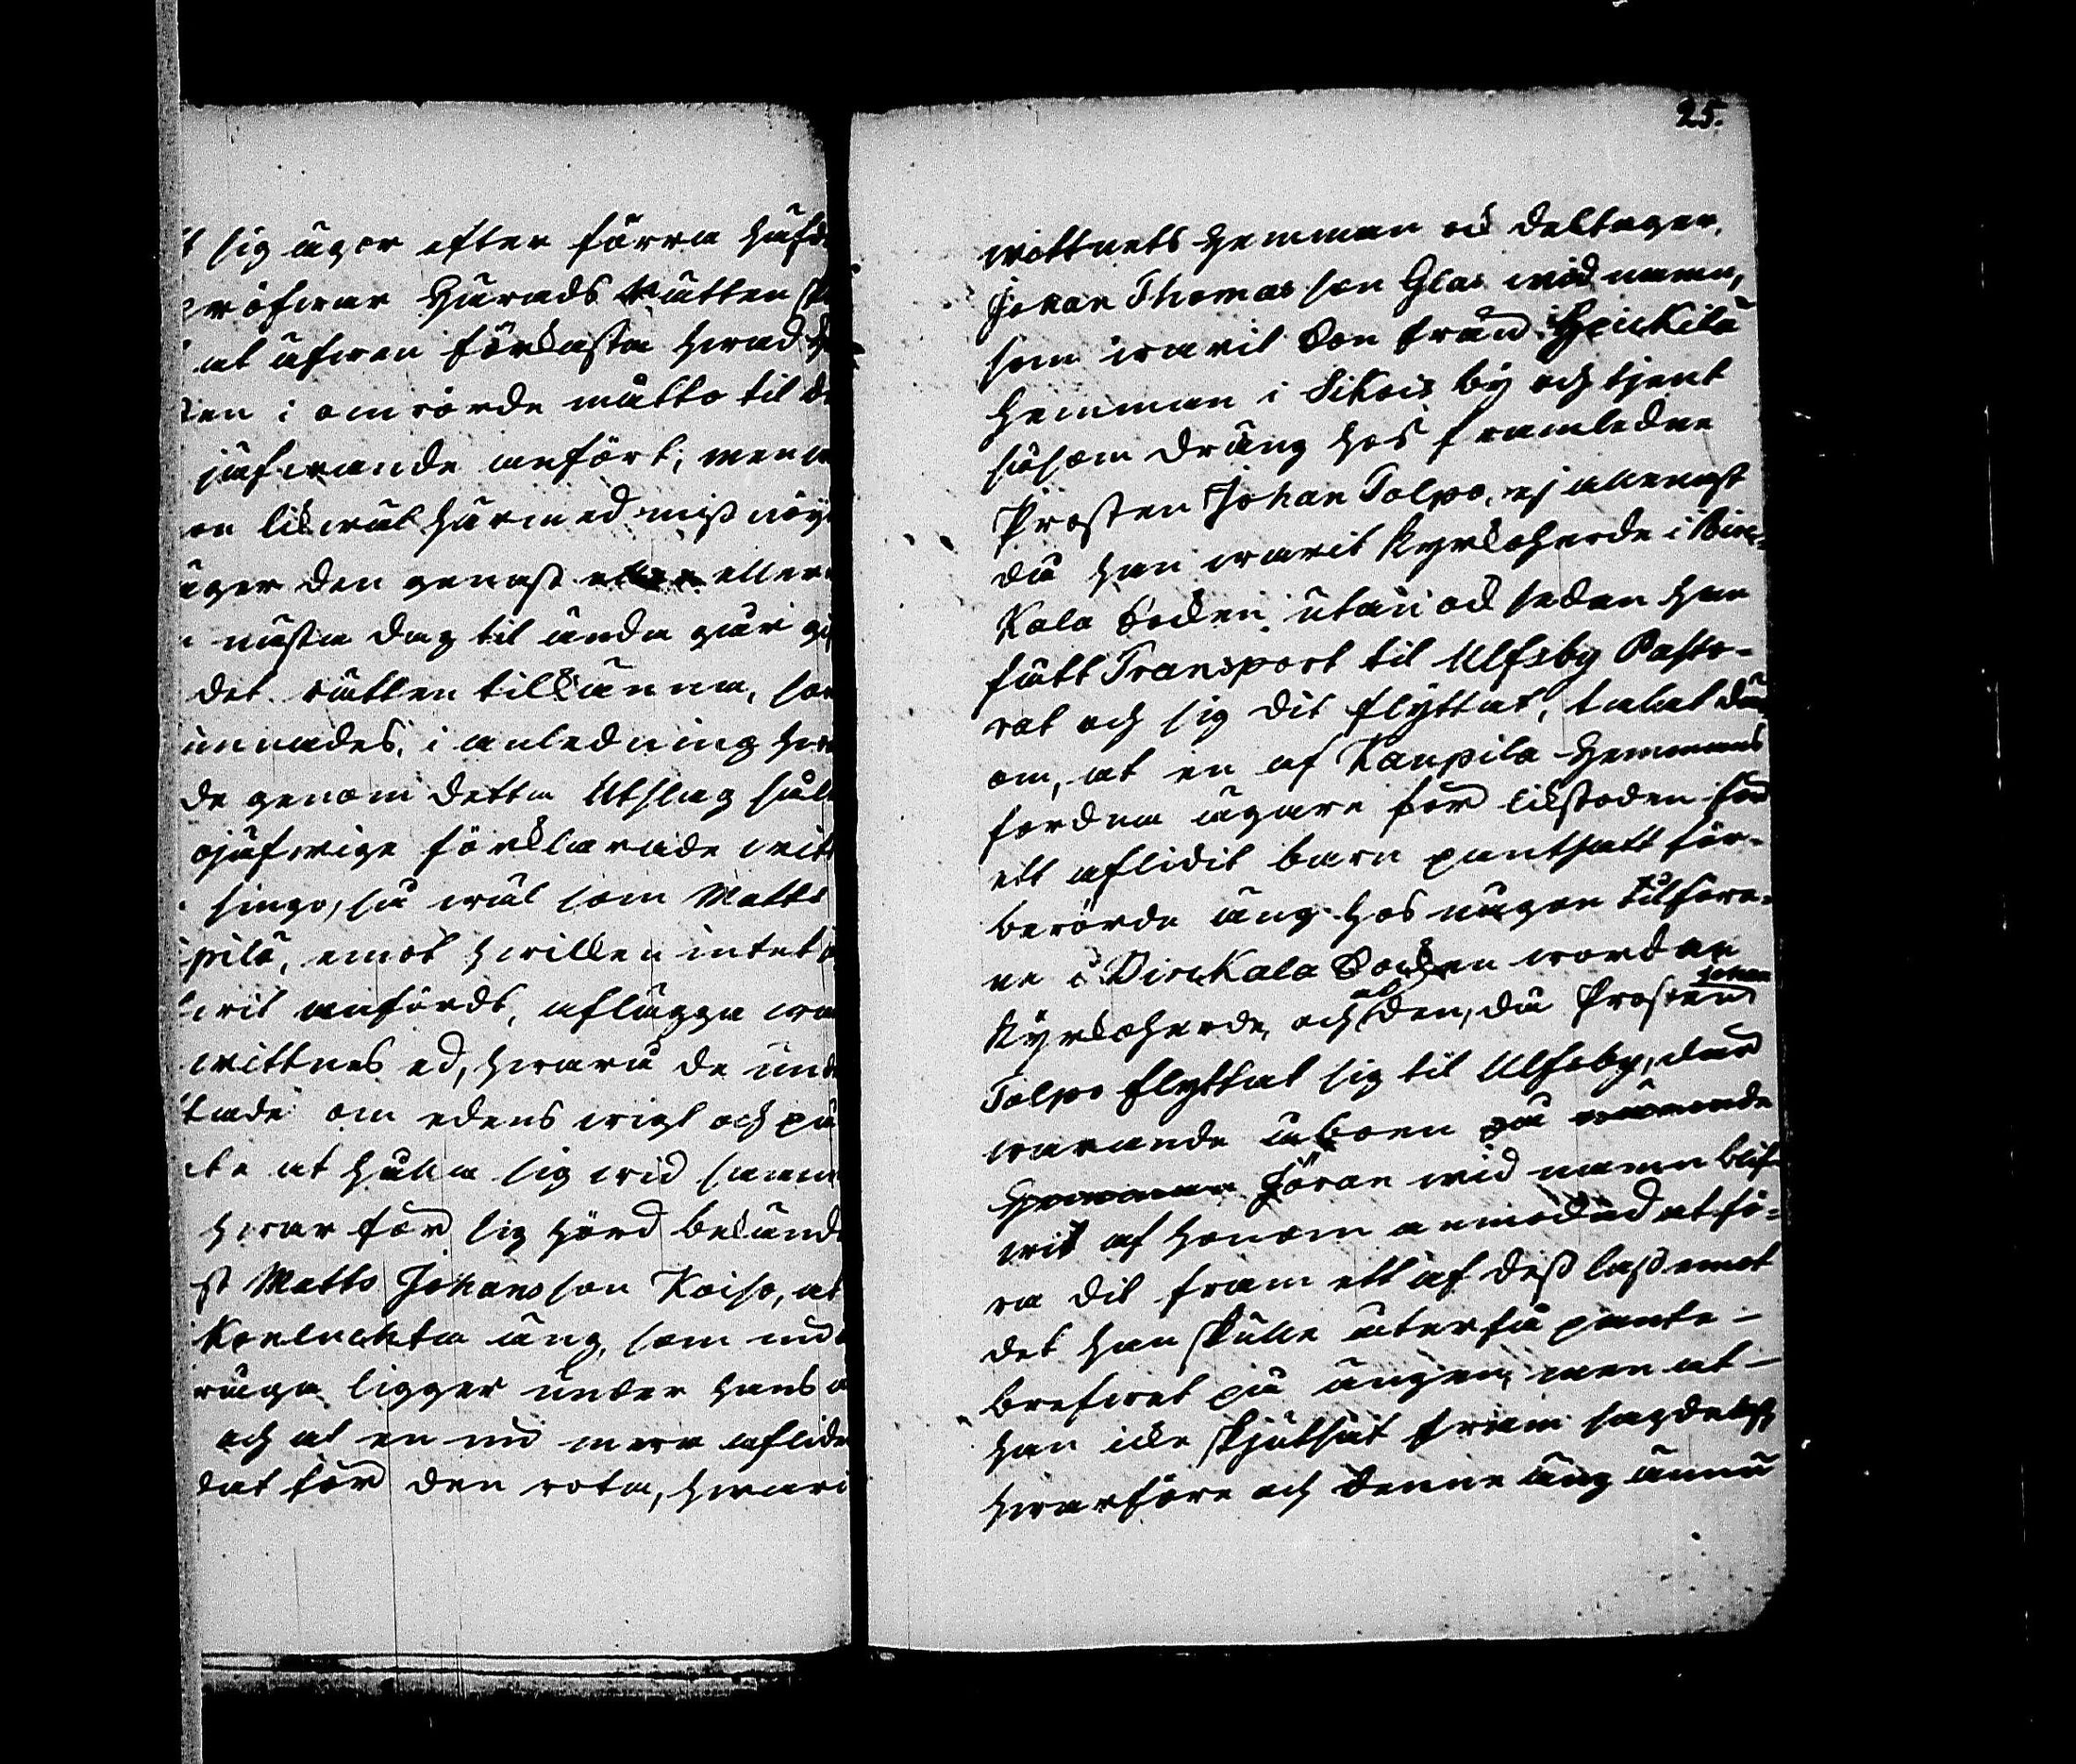 sig äger efter förra häfd
pröfwar Härads Rätten
at äfwen förkasta hwad
en i omrörde måtto til
jäfwande anfört; men
on likwäl härmed missnöy
äger den genast eller
nästa dag til ända går gif
det rätten tillkänna, som
unnades, i anledning hwar
de genom detta Utslag såle
ojäfwige förklarade wit
singo, så wäl som Matts
pilä, emot hwilken intet
wit anfördt, aflägga
wittnes ed, hwarå de und
tade om edens wigt och på
te at hålla sig wid sann
hwar för sig hörd bekänd
st Matts Johansson Koiso, at
Korluckta äng, som nu
råga ligger under hans
och at en nu mera aflide
dat för den rota, hwari
25.
wittnets hemman ock deltager,
Johan Thomasson Glas wid namn,
som warit Son från Heickilä
hemman i Sikois by och tjent
såsom dräng hos framledne
Prosten Johan Tolpo, ej allenast
då han warit Kyrkoherde i Birc-
kala Socken, utan ock sedan han
fått Transport til Ulfsby Pasto-
rat och sig dit flyttat, talat där
om, at en af Kaupila hemmans
fordna ägare för likstoden för
ett aflidit barn pantsatt för-
berörde äng hos någon tilfore-
ne i Birckala Socken wordne
Kyrkoherde, och at den, då Prosten Johan
Tolpo flyttat sig til Ulfsby, dåd
warande åboen på warande
hemman Jöran wid namn blif-
wit af honom anmodad at fö-
ra dit fram ett af dess lass emot
det han skulle återfå pante-
brefwet på ängen, men at
han icke skjutsat fram sagde lass,
hwarföre och denne äng ännu